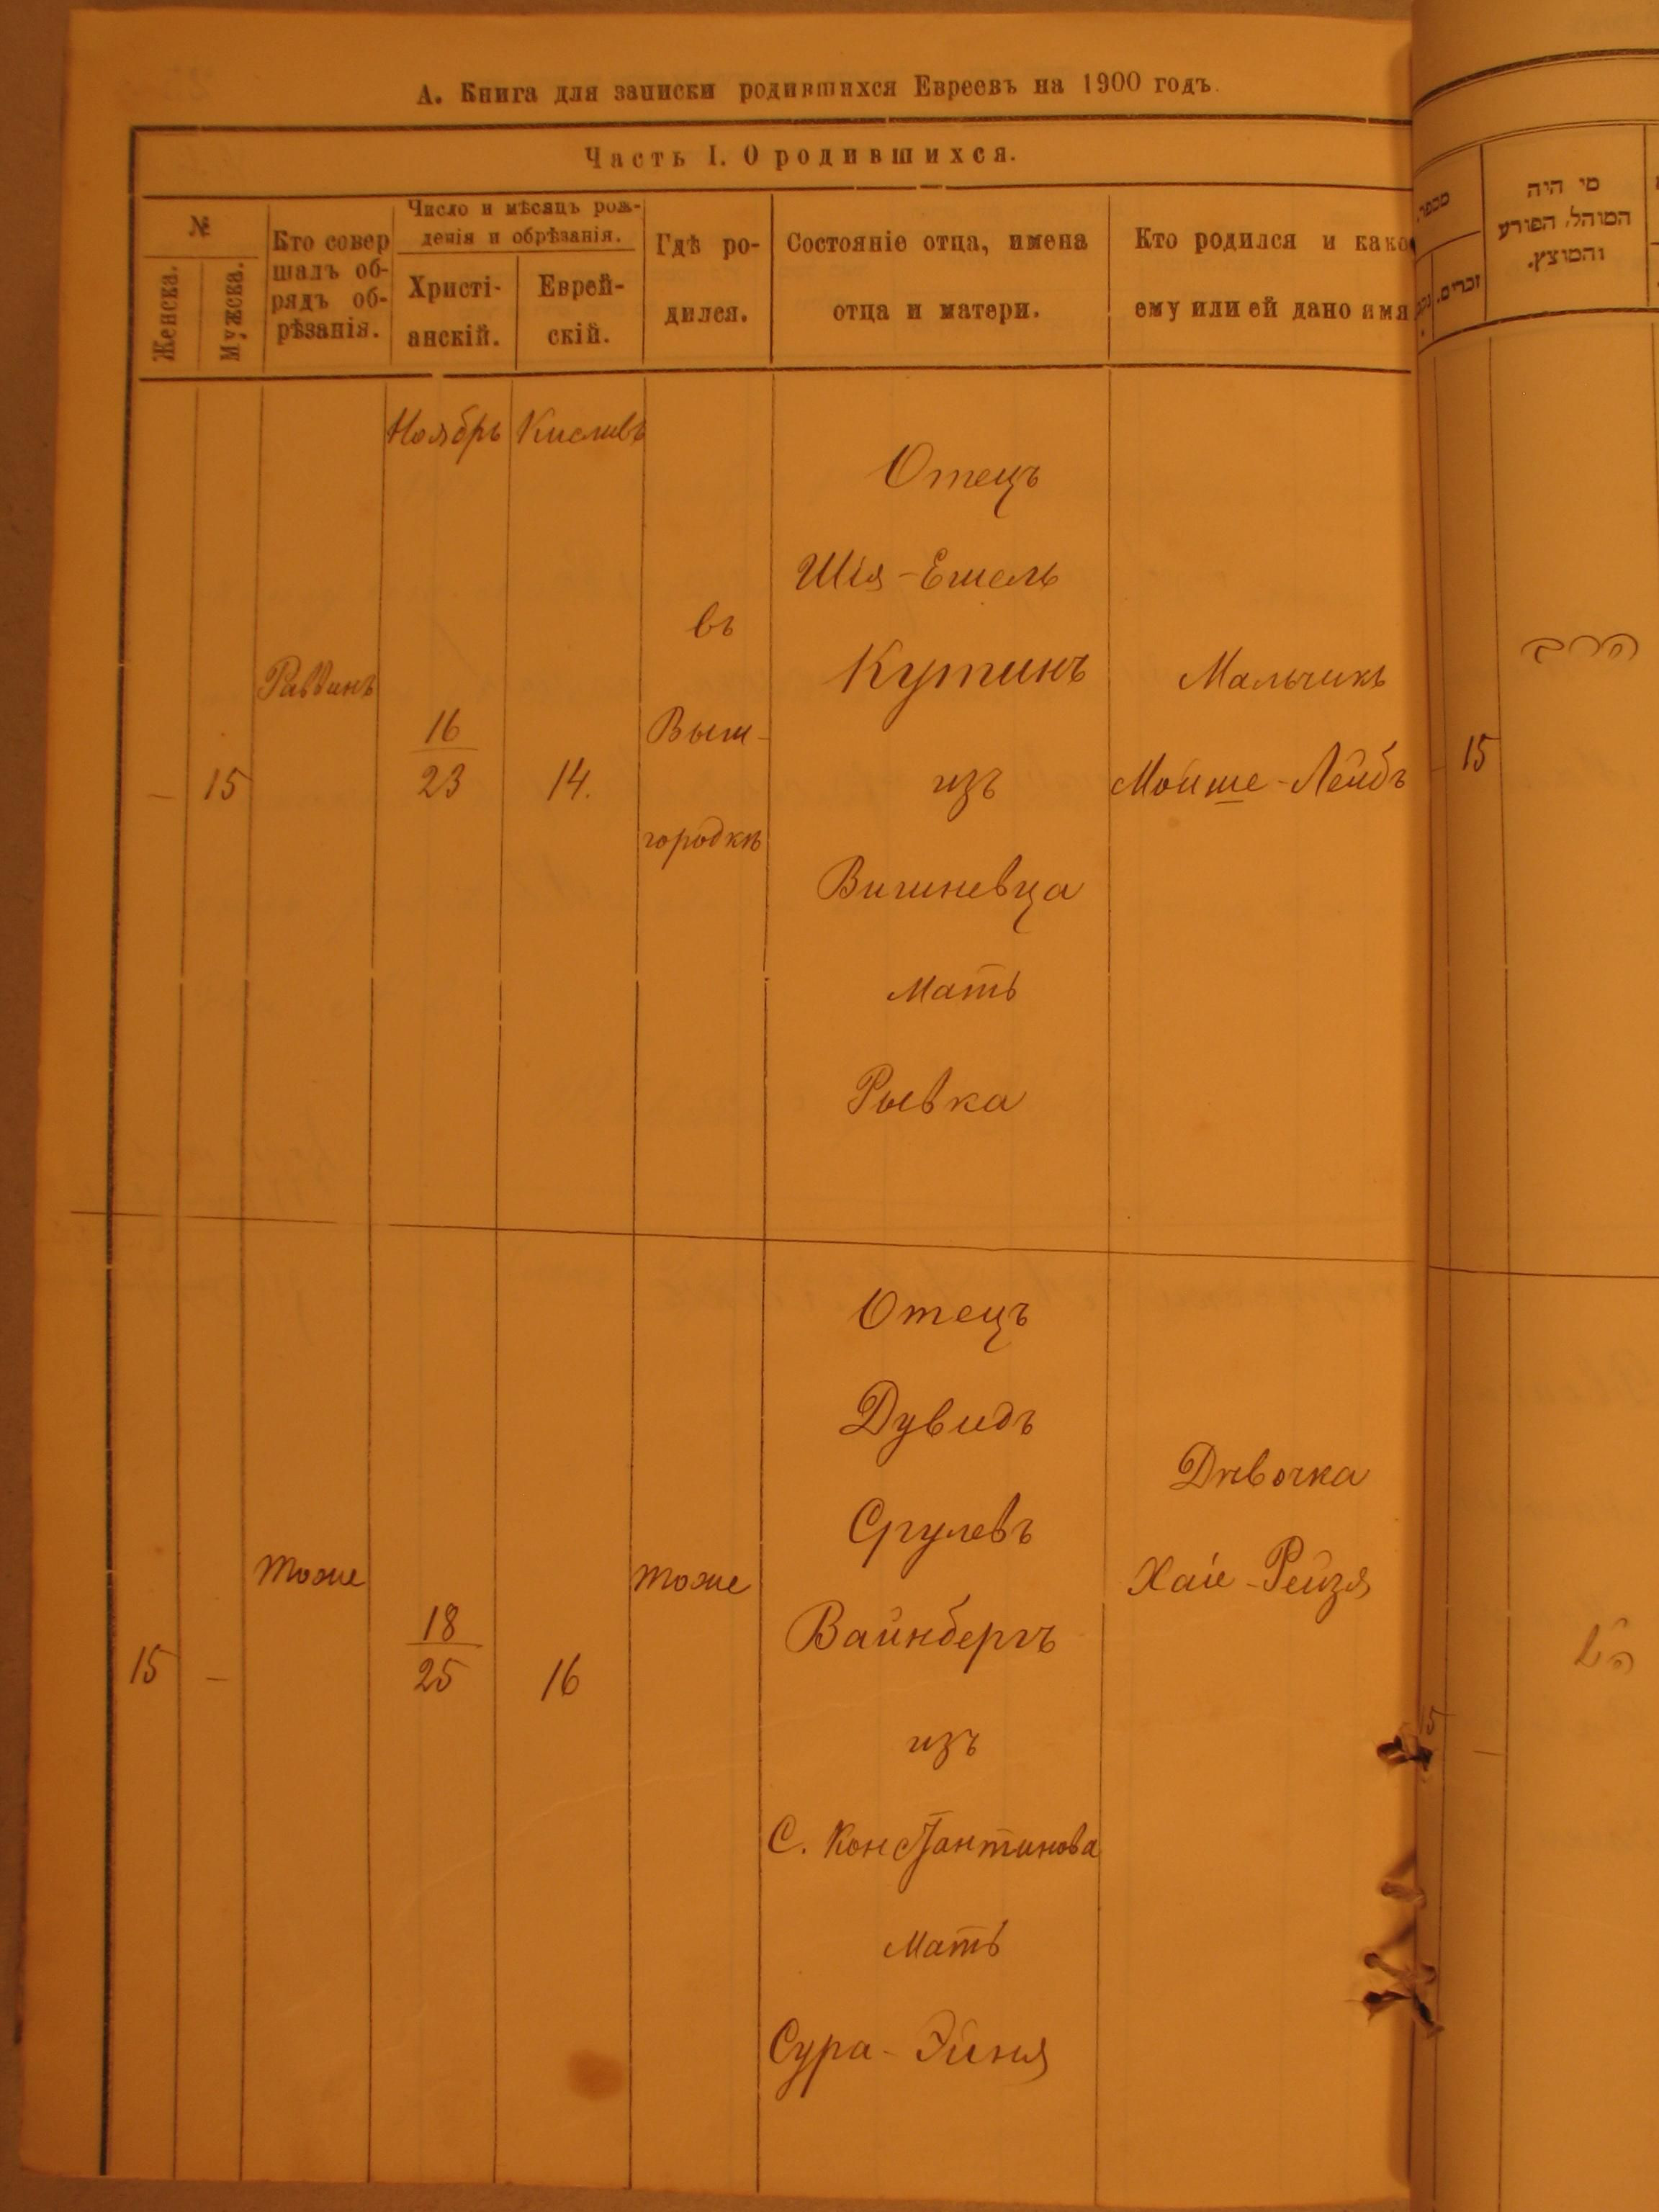 А. Книга для записки родившихся Евреевъ на 1900 годъ.
Часть I. О родившихся.
№
Женска.
Мужска.
Кто совер
шалъ об-
рядъ об-
рѣзанія.
Число и мѣсяцъ рож-
денія и обрѣзанія.
Христі-
анскій.
Еврей-
скій.
Гдѣ ро-
дился.
Состояніе отца, имена
отца и матери.
Кто родился и како
ему или ей дано имя
מספר.
זכרים.
מי היה
המוהל, הפורע
והמוצץ.
Ноябрь
Кисливъ
–
15
Раввинъ
16
23
14.
въ
Выш-
городкѣ
Отецъ
Шія-Ешель
Кутинъ
изъ
Вишневца
Мать
Рывка
Мальчикъ
Мойше-Лейбъ
15
הרב
15
–
тоже
18
25
16
тоже
Отецъ
Дувидъ
Срулевъ
Вайнбергъ
изъ
С. Константинова
Мать
Сура-Эйня
Дѣвочка
Хаіе-Рейзя
–